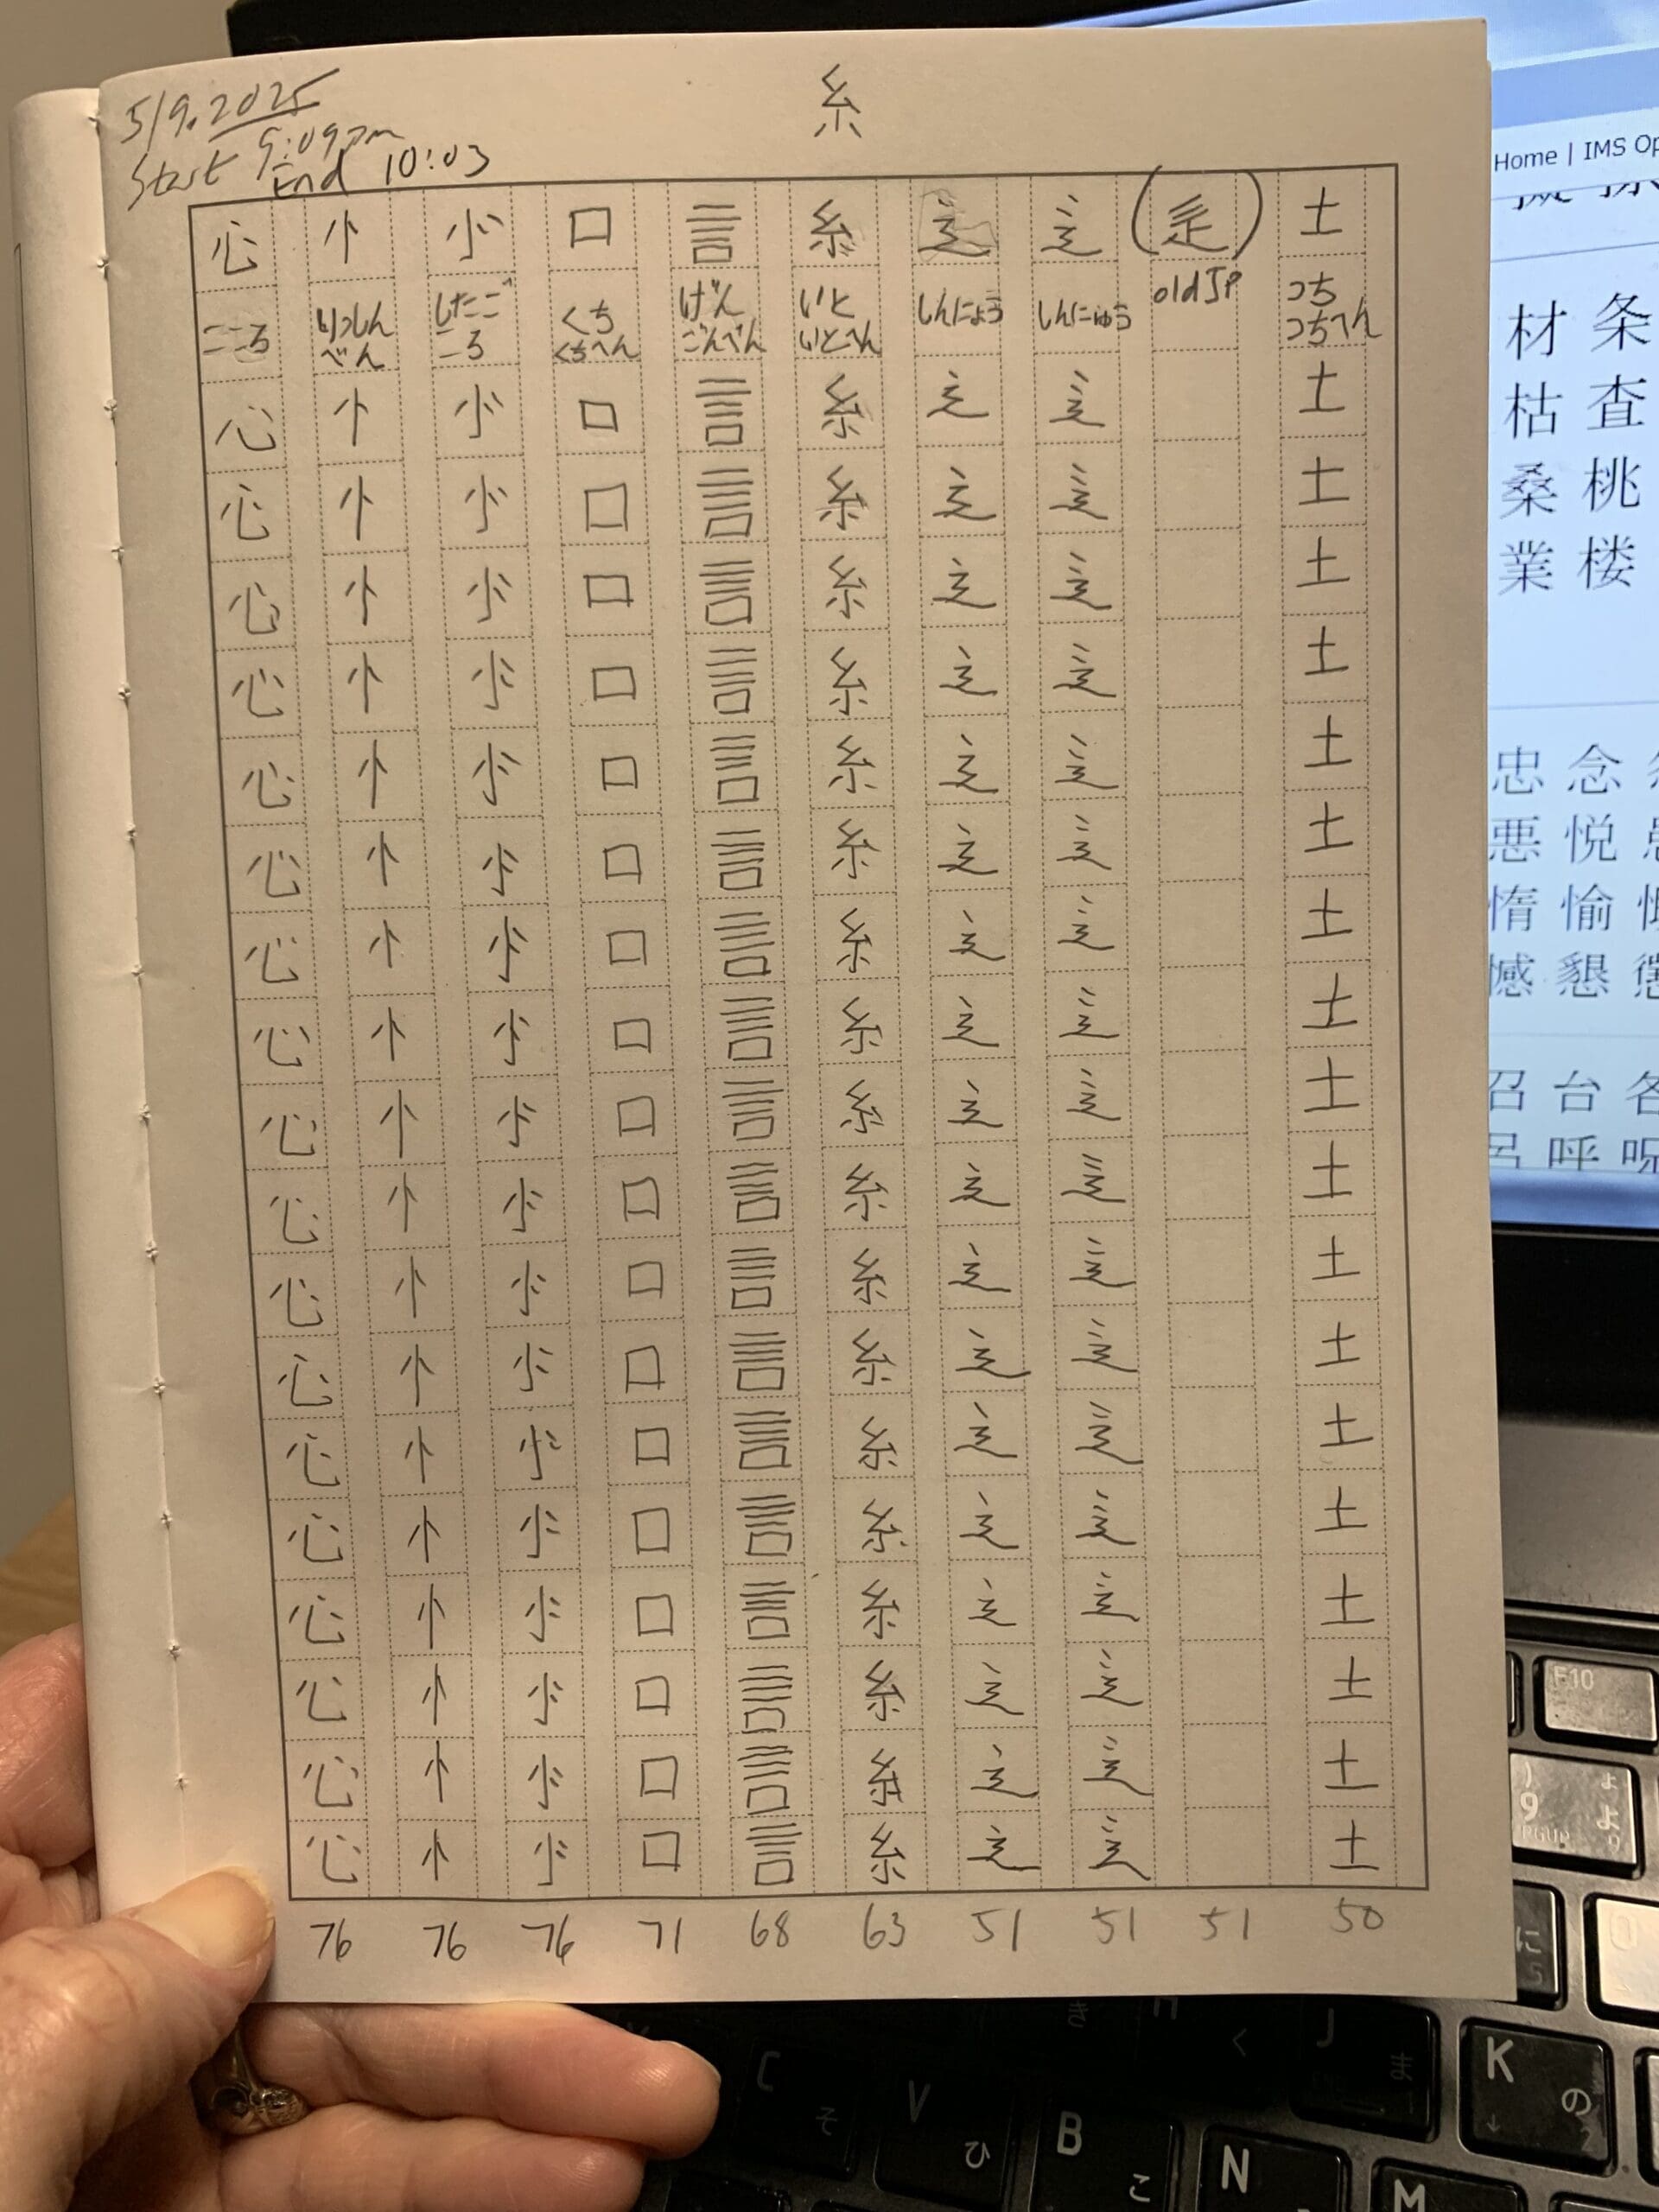 5/9.2025
Start 9:09pm
End 10:03
糸
心 忄 㣺 口 言 糸 ⻌ ⻍ (辵) 土
こころ りっしんべん したごころ くち くちへん げん ごんべん いと いとへん しんにょう しんにゅう old JP つち つちへん
心 忄 㣺 口 言 糸 ⻌ ⻍ 土
心 忄 㣺 口 言 糸 ⻌ ⻍ 土
心 忄 㣺 口 言 糸 ⻌ ⻍ 土
心 忄 㣺 口 言 糸 ⻌ ⻍ 土
心 忄 㣺 口 言 糸 ⻌ ⻍ 土
心 忄 㣺 口 言 糸 ⻌ ⻍ 土
心 忄 㣺 口 言 糸 ⻌ ⻍ 土
心 忄 㣺 口 言 糸 ⻌ ⻍ 土
心 忄 㣺 口 言 糸 ⻌ ⻍ 土
心 忄 㣺 口 言 糸 ⻌ ⻍ 土
心 忄 㣺 口 言 糸 ⻌ ⻍ 土
心 忄 㣺 口 言 糸 ⻌ ⻍ 土
心 忄 㣺 口 言 糸 ⻌ ⻍ 土
心 忄 㣺 口 言 糸 ⻌ ⻍ 土
心 忄 㣺 口 言 糸 ⻌ ⻍ 土
心 忄 㣺 口 言 糸 ⻌ ⻍ 土
心 忄 㣺 口 言 糸 ⻌ ⻍ 土
心 忄 㣺 口 言 糸 ⻌ ⻍ 土
76 76 76 71 68 63 51 51 51 50
Home | IMS Op
材 条
枯 査
桑 桃
業 楼
忠 念
悪 悦
惰 愉
憾 懇 懲
召 台 各
呂 呼 呪
F10
9 よ
PGUP
に 5
J
K の 2
C そ
V ひ
B こ
N
M
く